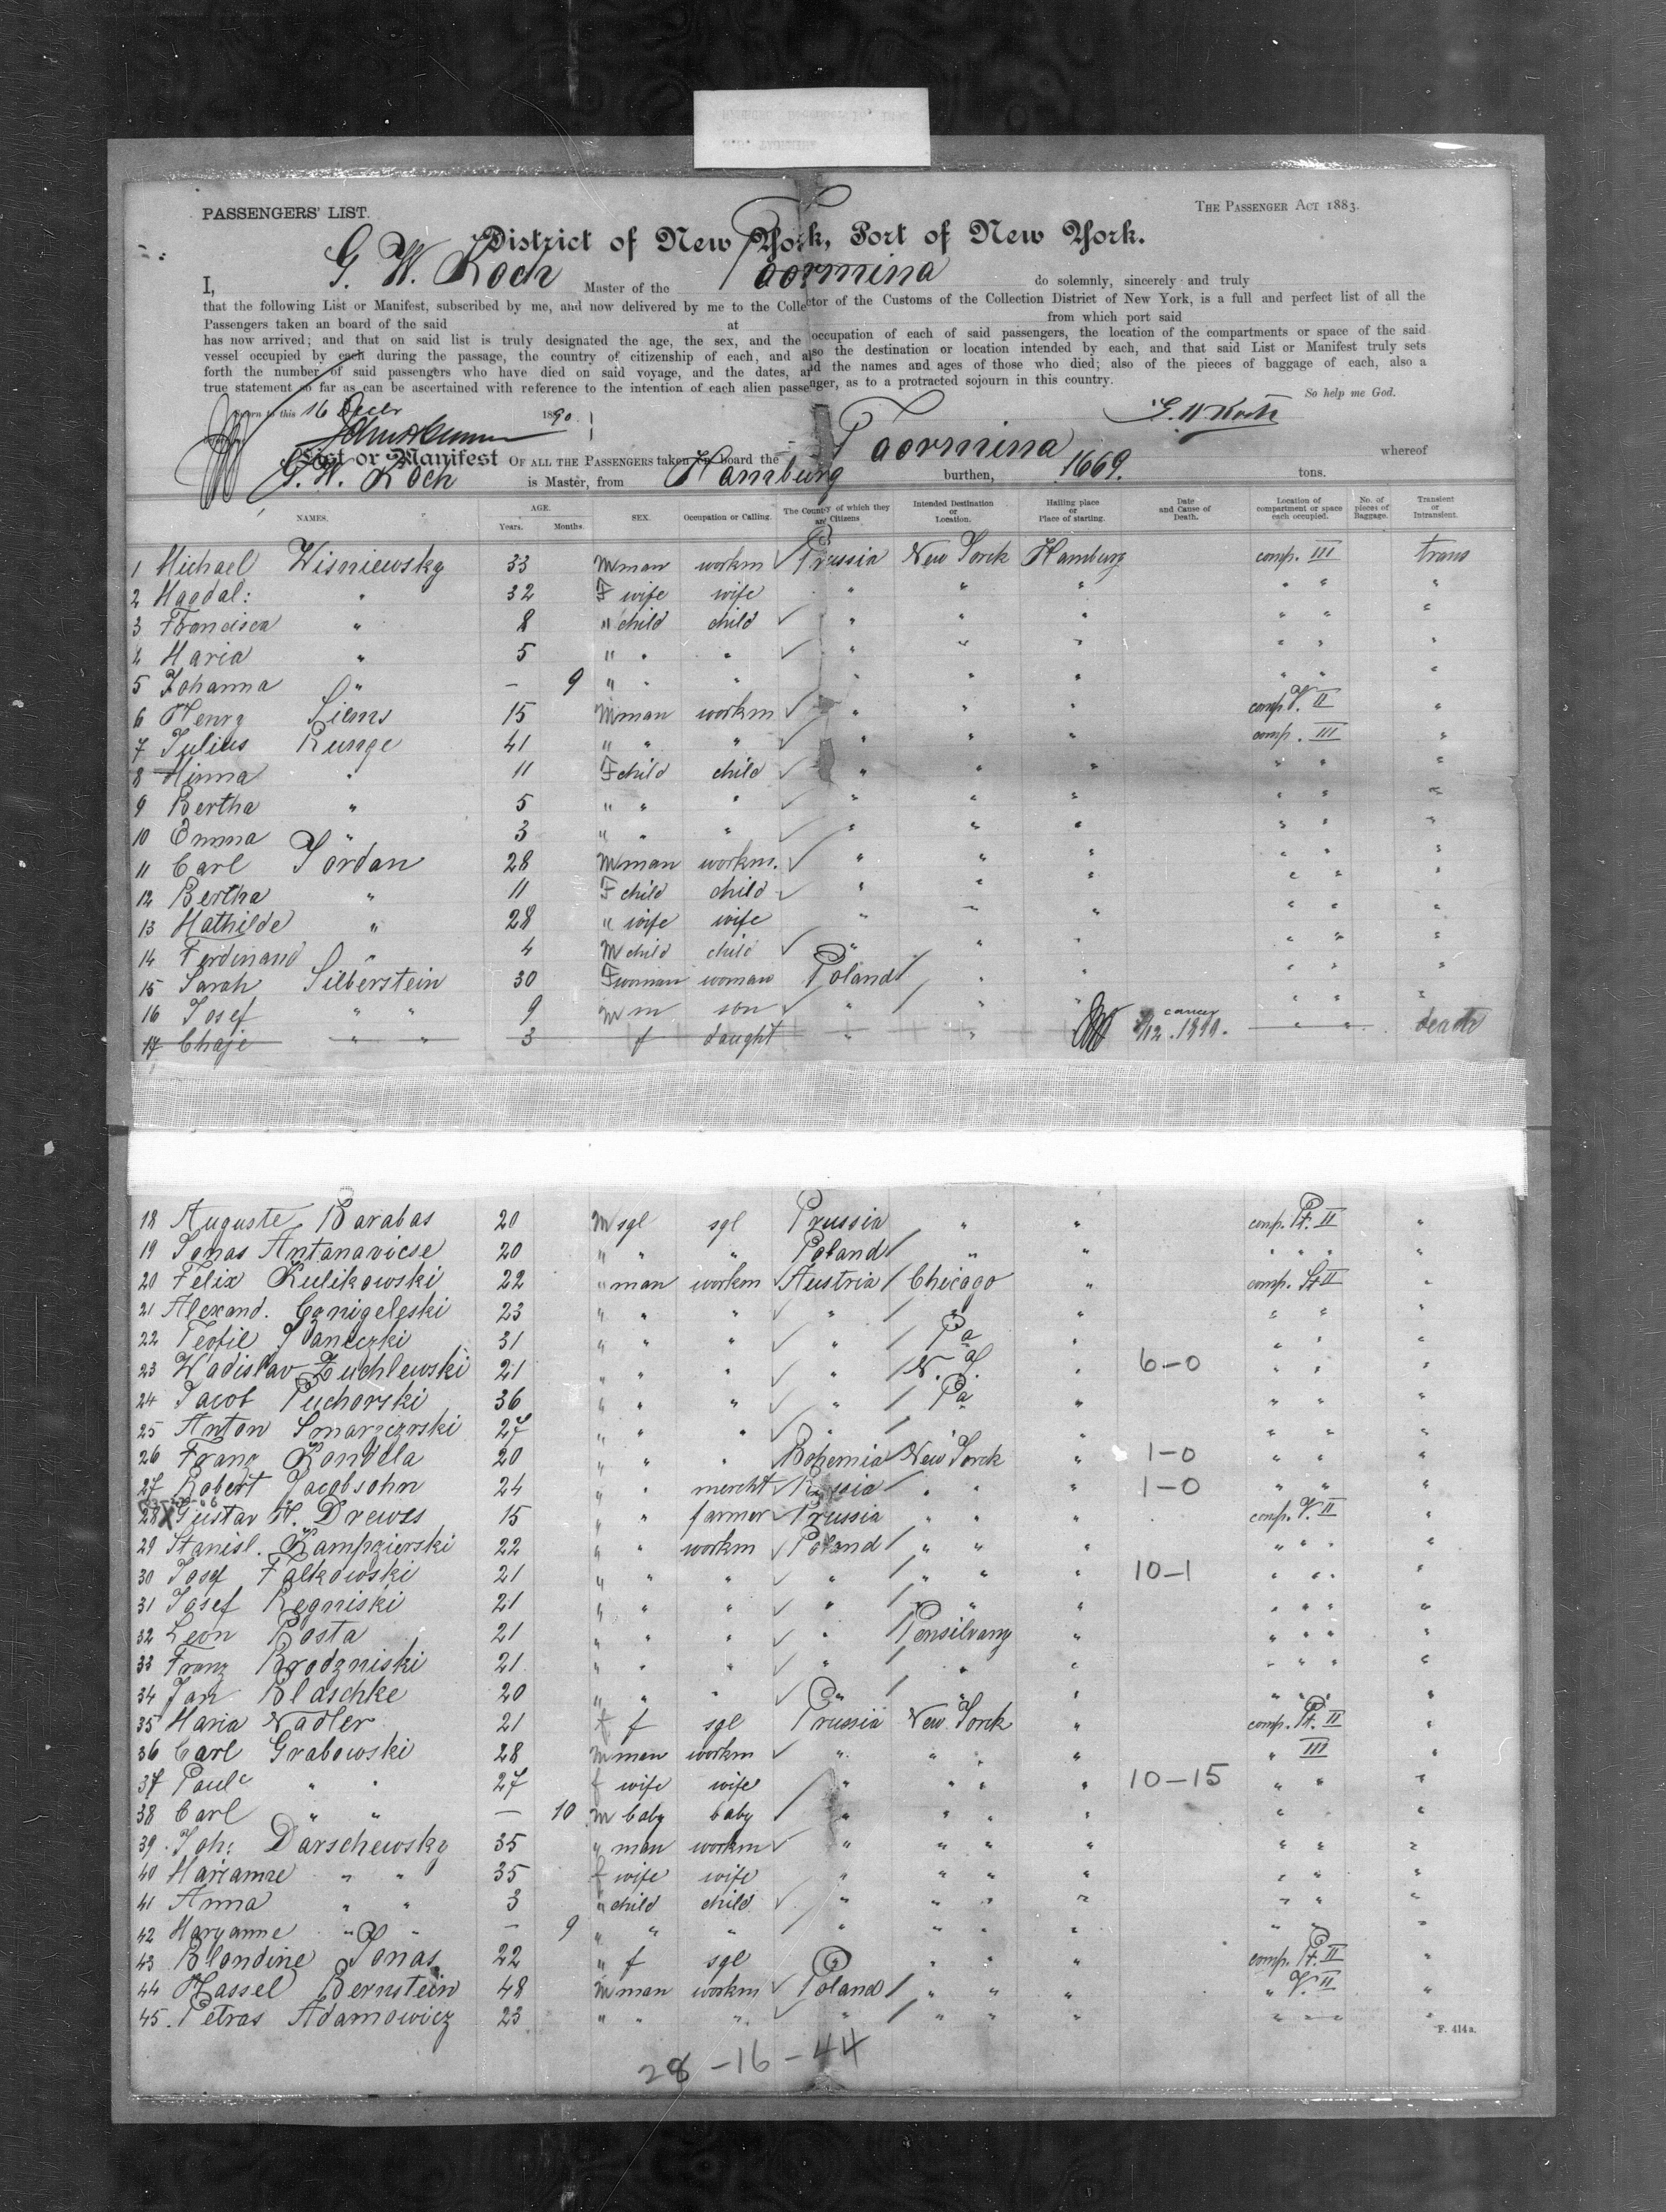 PASSENGERS' LIST.
THE PASSENGER ACT 1883.
District of New York, Port of New York.
I, G. W. Koch Master of the Taormina do solemnly, sincerely and truly
that the following List or Manifest, subscribed by me, and now delivered by me to the Collector of the Customs of the Collection District of New York, is a full and perfect list of all the
Passengers taken an board of the said at from which port said
has now arrived; and that on said list is truly designated the age, the sex, and the occupation of each of said passengers, the location of the compartments or space of the said
vessel occupied by each during the passage, the country of citizenship of each, and also the destination or location intended by each, and that said List or Manifest truly sets
forth the number of said passengers who have died on said voyage, and the dates, and the names and ages of those who died; also of the pieces of baggage of each, also a
true statement so far as can be ascertained with reference to the intention of each alien passenger, as to a protracted sojourn in this country.
So help me God.
Sworn to this 16 Decbr 1890
G. W. Koch
List or Manifest OF ALL THE PASSENGERS taken on board the Taormina whereof
G. W. Koch is Master, from Hamburg burthen, 1669. tons.
NAMES. AGE. Years. Months. SEX. Occupation or Calling. The Country of which they are Citizens Intended Destination or Location. Hailing place or Place of starting. Date and Cause of Death. Location of compartment or space each occupied. No. of pieces of Baggage. Transient or Intransient.
1 Michael Wisniewsky 33 M man workm Prussia New Yorck Hamburg comp. III trans
2 Magdal: " 32 F wife wife " " " " " "
3 Francisca " 8 " child child " " " " " "
4 Maria " 5 " " " " " " " " "
5 Johanna " — 9 " " " " " " " " "
6 Henry Siems 15 M man workm " " " comp. V. II "
7 Julius Runge 41 " " " " " " comp. III "
8 Minna " 11 F child child " " " " " "
9 Bertha " 5 " " " " " " " " "
10 Emma " 3 " " " " " " " " "
11 Carl Jordan 28 M man workm. " " " " " "
12 Bertha " 11 F child child " " " " " "
13 Mathilde " 28 " wife wife " " " " " "
14 Ferdinand " 4 M child child " " " " " "
15 Sarah Silberstein 30 F woman woman Poland " " " " "
16 Josef " " 9 m m son " " " " " "
17 Chaje " " 3 f daught " " /12. 1890. " " death
18 Auguste Barabas 20 M sgl sgl Prussia " " comp. Pt. II "
19 Jonas Antanavicse 20 " " " Poland " " " " " "
20 Felix Kulikowski 22 " man workm Austria Chicago " comp. St II "
21 Alexand. Conigeleski 23 " " " " " " " " "
22 Teofil Janiczki 31 " " " " Pa " " " "
23 Wadislav Zuchlewski 21 " " " " N. Y. " 6-0 " " "
24 Jacob Puchorski 36 " " " " Pa " " " "
25 Anton Smarzczrski 27 " " " " " " " " "
26 Franz Kondela 20 " " " Bohemia New Yorck " 1-0 " " "
27 Robert Jacobsohn 24 " " mercht Russia " " " 1-0 " " "
28 Gustav H. Drewes 15 " " farmer Prussia " " " comp. V. II "
29 Stanisl. Kampzierski 22 " " workm Poland " " " " " " "
30 Josef Falkowski 21 " " " " " " " 10-1 " " " "
31 Josef Regniski 21 " " " " " " " " " " "
32 Leon Posta 21 " " " " Pensilvany " " " " "
33 Franz Brodzniski 21 " " " " " " " " " "
34 Jan Blaschke 20 " " " " " " " " " "
35 Maria Nadler 21 f f sgl Prussia New Yorck " comp. Pt. II "
36 Carl Grabowski 28 M man workm " " " " " III "
37 Paule " " 27 f wife wife " " " " 10-15 " " "
38 Carl " " — 10 m baby baby " " " " " " "
39 Joh: Darschewsky 35 " man workm " " " " " " "
40 Marianne " " 35 f wife wife " " " " " " "
41 Anna " " 3 " child child " " " " " " "
42 Maryanne " " — 9 " " " " " " " " " "
43 Blondine Jonas 22 " f sgl " " " comp. Pt. II "
44 Hassel Bernstein 48 M man workm Poland " " " " V. II "
45. Petras Adamowicz 23 " " " " " " " " " "
F. 414a.
28-16-44